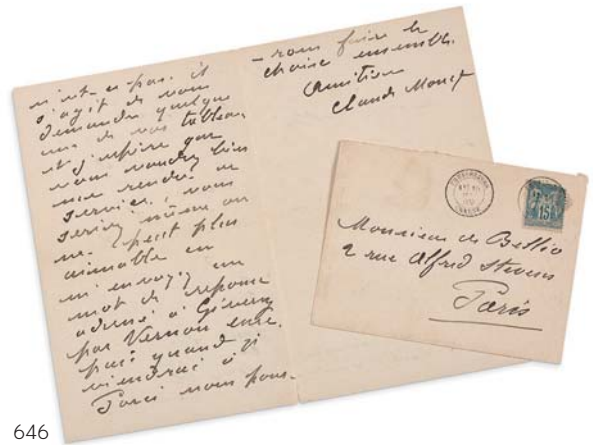 n'est-ce pas. il
s'agit de vous
demander quelques
uns de vos tableaux
et j'espère que
vous voudrez bien
me rendre ce
service, vous
seriez même on
ne peut plus
aimable en
m'envoyant un
mot de réponse
adressé à Giverny
par Vernon Eure.
puis quand je
viendrai à
Paris nous pour-
-rons faire le
choix ensemble.
Amitiés
Claude Monet
15
Monsieur de Bellio
2 rue Alfred Stevens
Paris
646